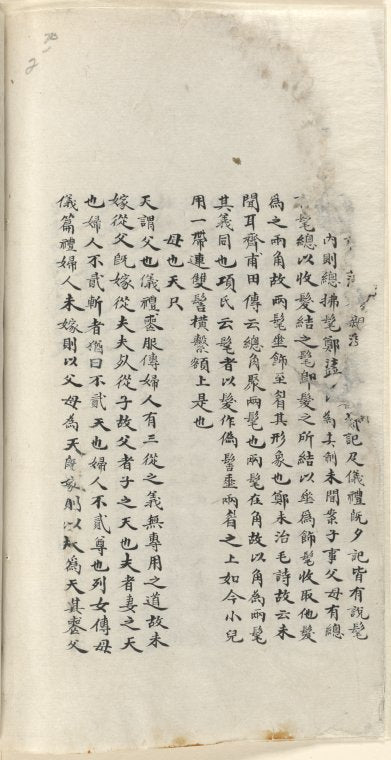 記及儀禮既夕記皆有說髦
內則總拂髦鄭注為其制未聞案子事父母有總
髦總以收髮結之髦即髮之所結以垂為飾髦收取他髮
為之兩角故兩髦垂飾至眉其形象也鄭未治毛詩故云未
聞耳齊甫田傳云總角聚兩髦也兩髦在角故以角為兩髦
其義同也項氏云髦者以髮作偽髻垂兩眉之上如今小兒
用一帶連雙髻橫繫額上是也
母也天只
天謂父也儀禮喪服傳婦人有三從之義無專用之道故未
嫁從父既嫁從夫夫死從子故父者子之天也夫者妻之天
也婦人不貳斬者猶曰不貳天也婦人不貳尊也列女傳母
儀篇禮婦人未嫁則以父母為天既嫁則以夫為天其喪父
2